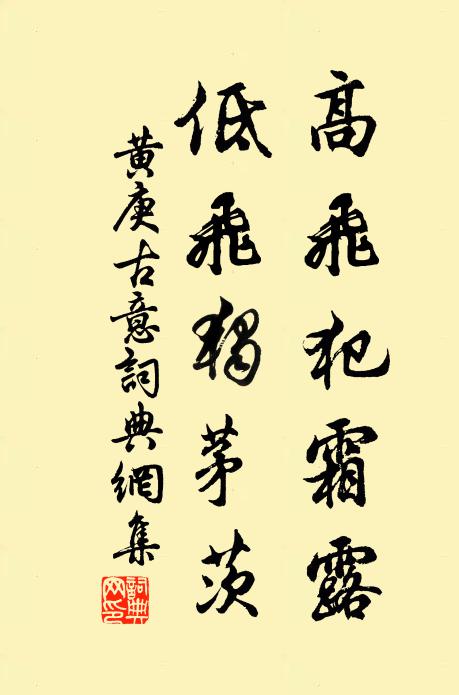 高飛犯霜露
低飛觸茅茨
黃庚古意詞典網集
詞典網印